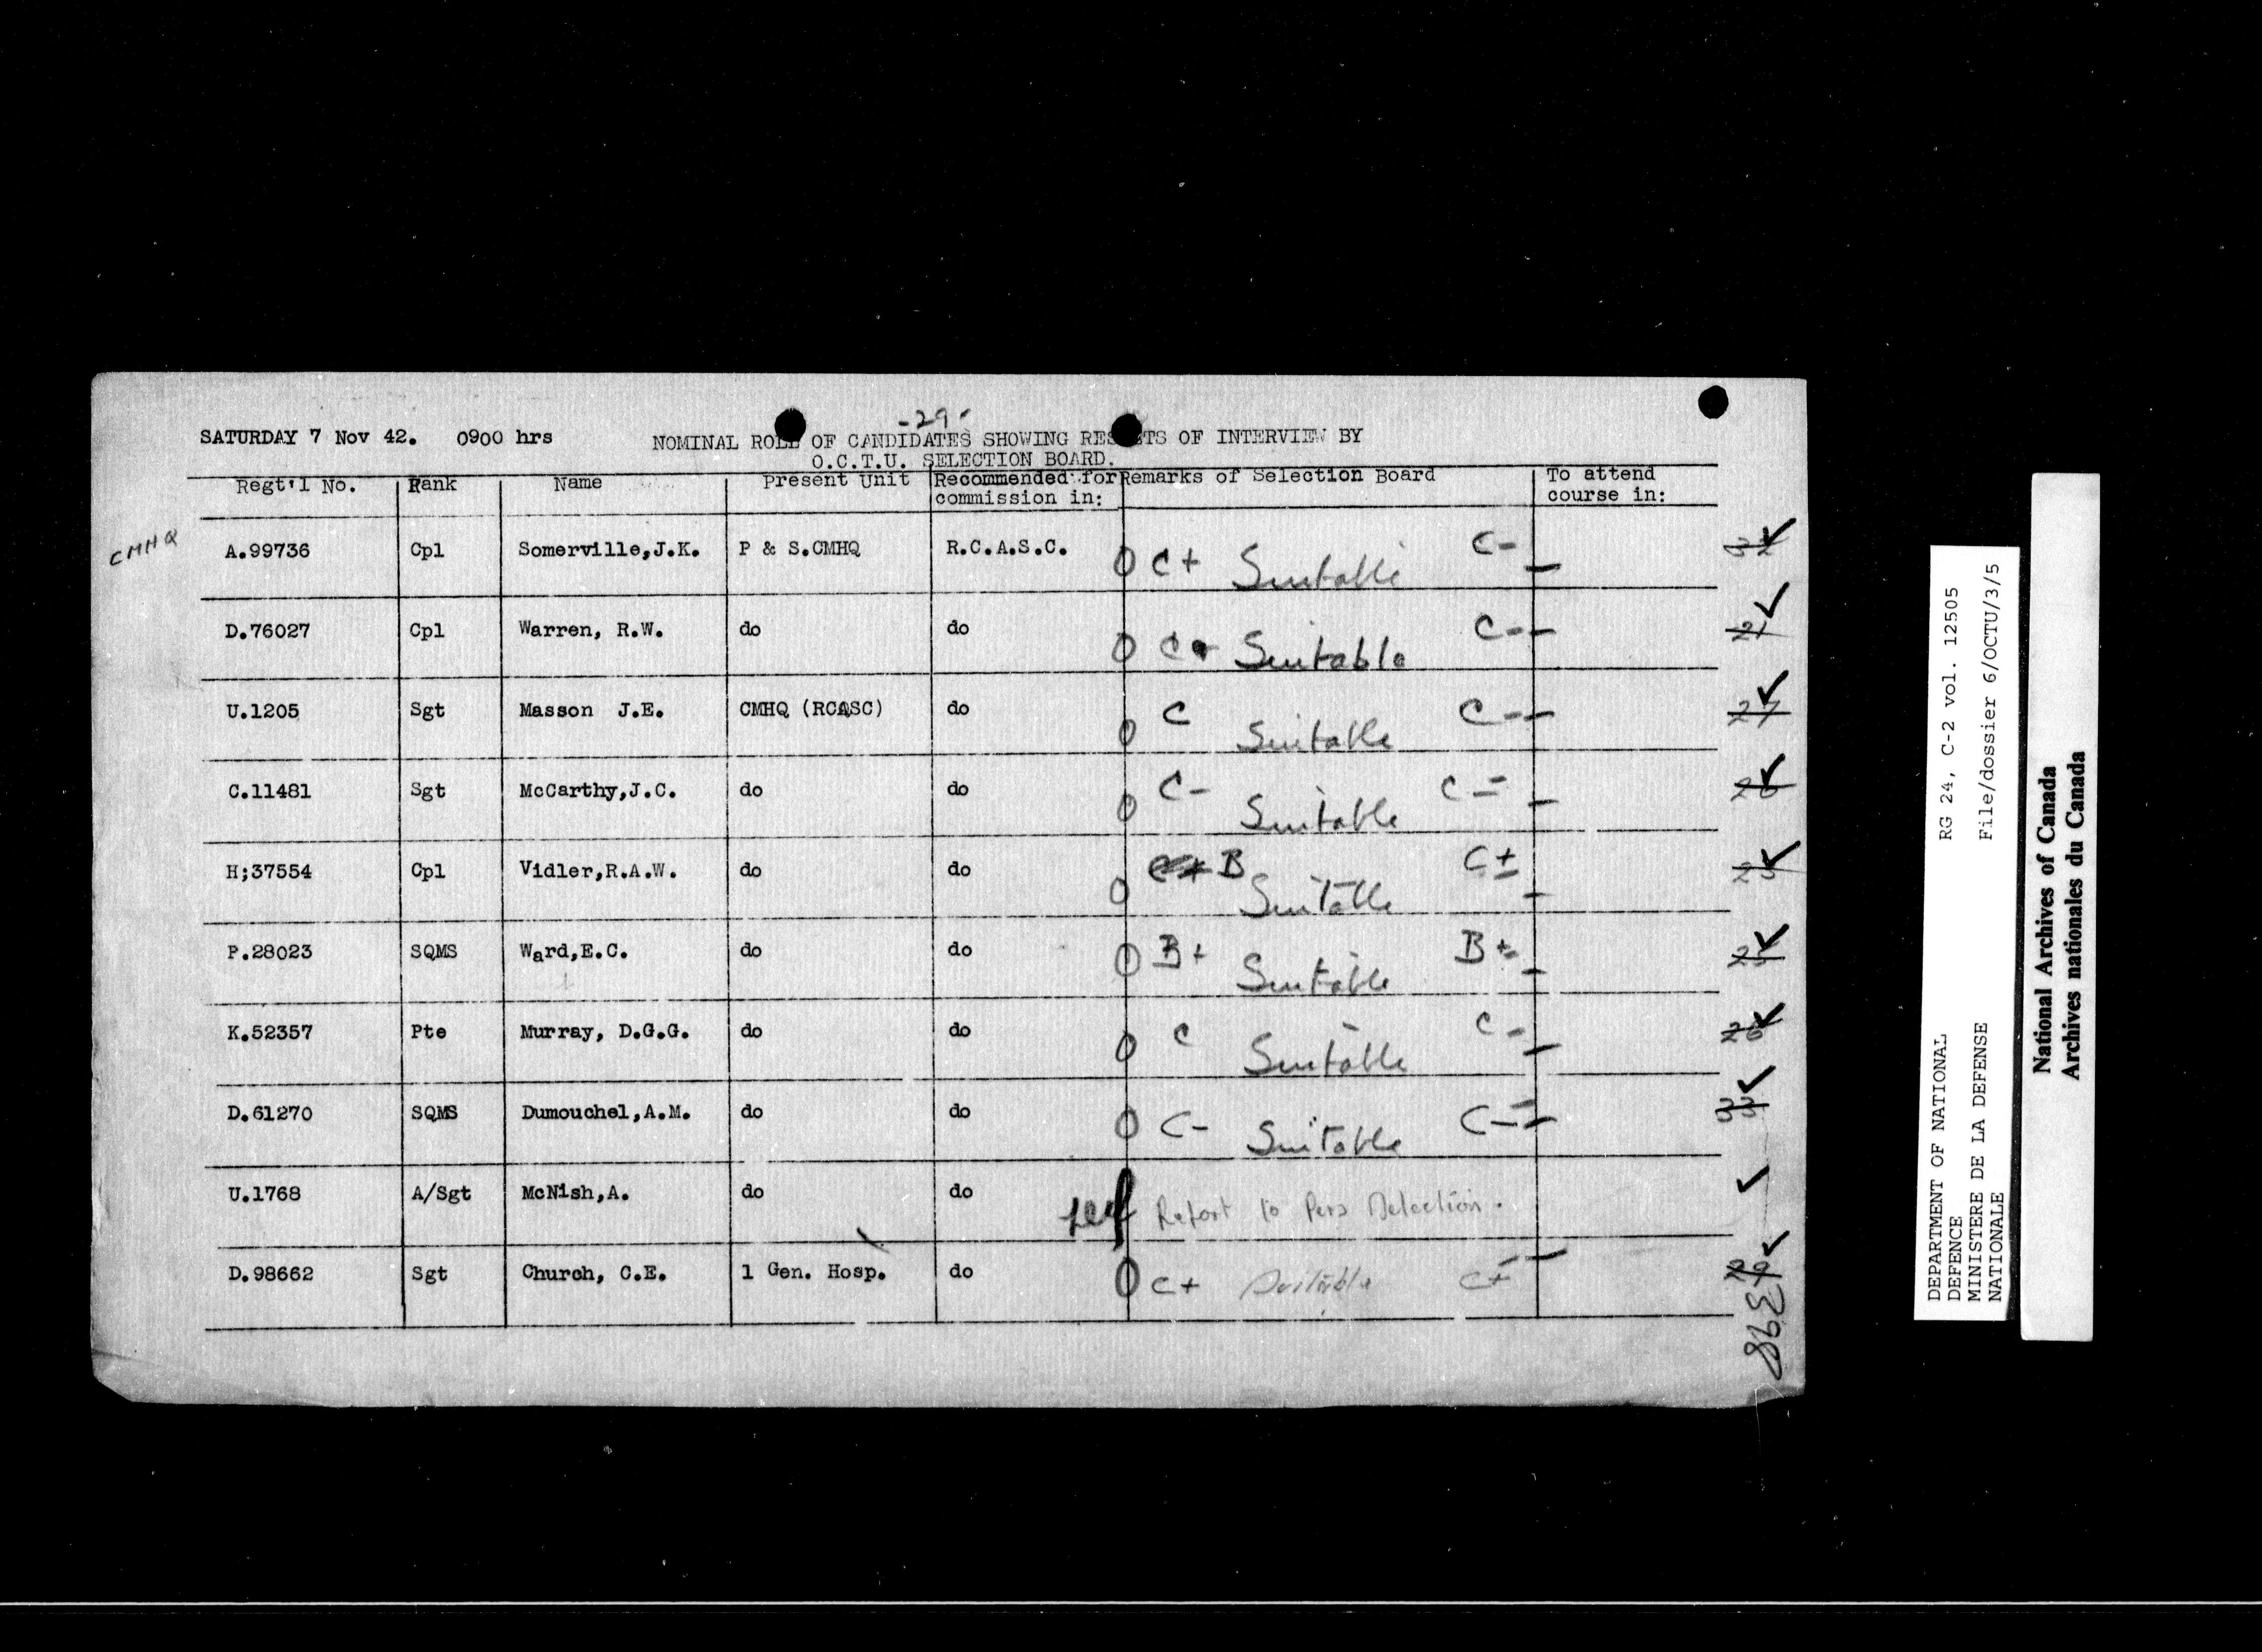 -29-
SATURDAY 7 Nov 42. 0900 hrs NOMINAL ROLL OF CANDIDATES SHOWING RES TS OF INTERVIEW BY
O.C.T.U. SELECTION BOARD.
Regt'l No. Rank Name Present Unit Recommended for commission in: Remarks of Selection Board To attend course in:
CMHQ A.99736 Cpl Somerville,J.K. P & S.CMHQ R.C.A.S.C. O C+ Suitable C-
D.76027 Cpl Warren, R.W. do do O C+ Suitable C- 21
U.1205 Sgt Masson J.E. CMHQ (RCASC) do O C Suitable C- 27
C.11481 Sgt McCarthy,J.C. do do O C- Suitable C- 26
H;37554 Cpl Vidler,R.A.W. do do O B Suitable C+
P.28023 SQMS Ward,E.C. do do O B+ Suitable B+ 25
K.52357 Pte Murray, D.G.G. do do O C Suitable C- 26
D.61270 SQMS Dumouchel,A.M. do do O C- Suitable C- 33
U.1768 A/Sgt McNish,A. do do Report to Pers Selection.
D.98662 Sgt Church, C.E. 1 Gen. Hosp. do O C+ Suitable C+ 29
398
DEPARTMENT OF NATIONAL RG 24, C-2 vol. 12505
DEFENCE
MINISTERE DE LA DEFENSE File/dossier 6/OCTU/3/5
NATIONALE
National Archives of Canada
Archives nationales du Canada